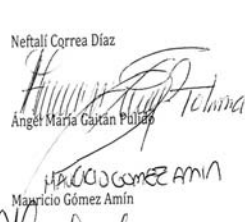 Neftalí Correa Díaz
Tolima
Ángel María Gaitán Pulido
MAURICIO GOMEZ AMIN
Mauricio Gómez Amín